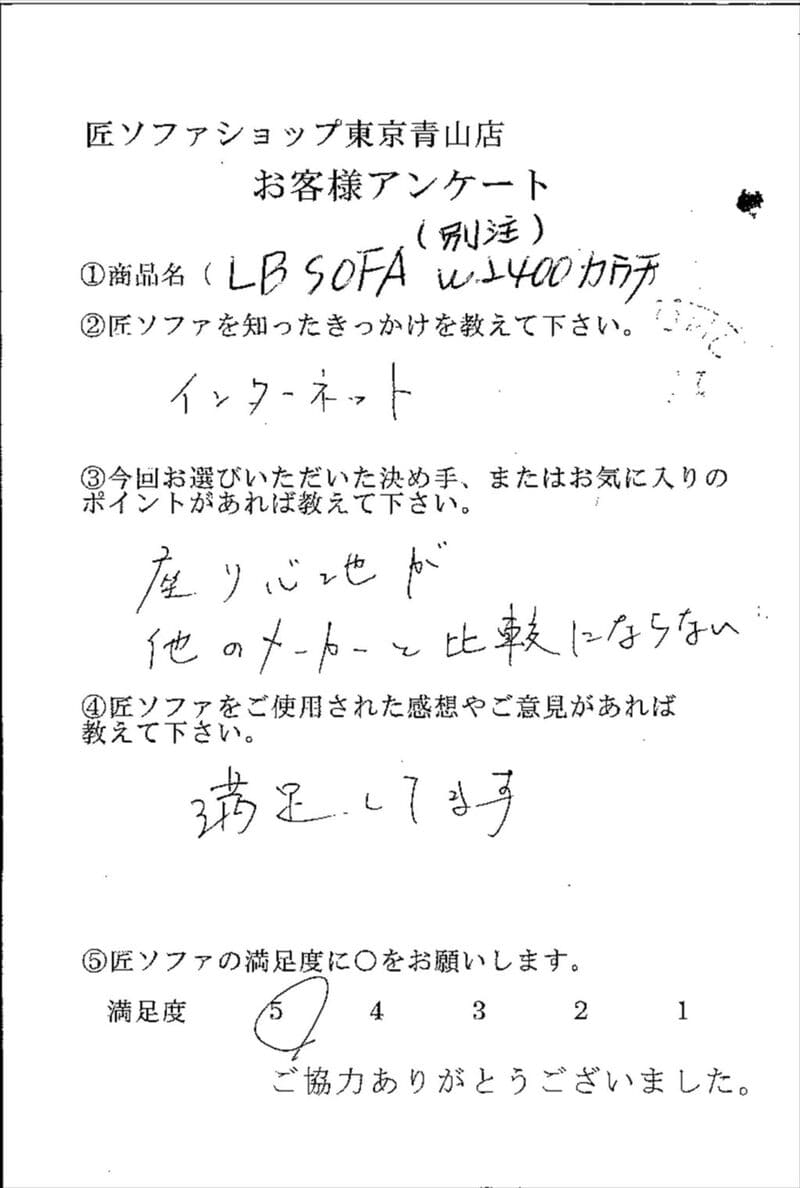 匠ソファショップ東京青山店
お客様アンケート
(別注)
①商品名( LB SOFA W2400カウチ
②匠ソファを知ったきっかけを教えて下さい。
インターネット
③今回お選びいただいた決め手、またはお気に入りの
ポイントがあれば教えて下さい。
座り心地が
他のメーカーと比較にならない
④匠ソファをご使用された感想やご意見があれば
教えて下さい。
満足してます
⑤匠ソファの満足度に〇をお願いします。
満足度 5 4 3 2 1
ご協力ありがとうございました。